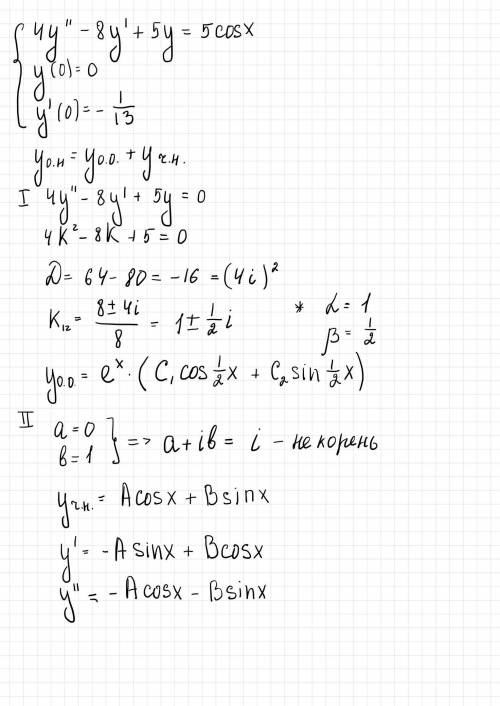 4y'' - 8y' + 5y = 5cosx
y(0) = 0
y'(0) = - 1/13
yо.н = yо.о. + yч.н.
I 4y'' - 8y' + 5y = 0
4k² - 8k + 5 = 0
D = 64 - 80 = -16 = (4i)²
K₁₂ = (8 ± 4i)/8 = 1 ± 1/2 i * α = 1
β = 1/2
yо.о. = eˣ · (C₁ cos 1/2 x + C₂ sin 1/2 x)
II a = 0
b = 1 } => a + ib = i - не корень
yч.н. = Acosx + Bsinx
y' = -Asinx + Bcosx
y'' = -Acosx - Bsinx